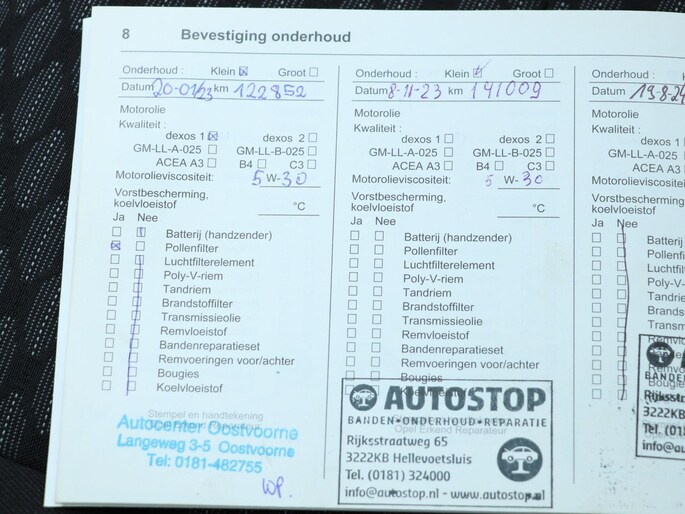 8 Bevestiging onderhoud
Onderhoud : Klein Groot
Datum 20-01-23 km 122852
Motorolie
Kwaliteit :
dexos 1 dexos 2
GM-LL-A-025 GM-LL-B-025
ACEA A3 B4 C3
Motorolieviscositeit: 5 W- 30
Vorstbescherming,
koelvloeistof °C
Ja Nee
Batterij (handzender)
Pollenfilter
Luchtfilterelement
Poly-V-riem
Tandriem
Brandstoffilter
Transmissieolie
Remvloeistof
Bandenreparatieset
Remvoeringen voor/achter
Bougies
Koelvloeistof
Stempel en handtekening
Opel Erkend Reparateur
Autocenter Oostvoorne
Langeweg 3-5 Oostvoorne
Tel: 0181-482755
Onderhoud : Klein Groot
Datum 8-11-23 km 141009
Motorolie
Kwaliteit :
dexos 1 dexos 2
GM-LL-A-025 GM-LL-B-025
ACEA A3 B4 C3
Motorolieviscositeit: 5 W- 30
Vorstbescherming,
koelvloeistof °C
Ja Nee
Batterij (handzender)
Pollenfilter
Luchtfilterelement
Poly-V-riem
Tandriem
Brandstoffilter
Transmissieolie
Remvloeistof
Bandenreparatieset
Remvoeringen voor/achter
Bougies
Koelvloeistof
Opel Erkend Reparateur
AUTOSTOP
BANDEN·ONDERHOUD·REPARATIE
Rijksstraatweg 65
3222KB Hellevoetsluis
Tel. (0181) 324000
info@autostop.nl - www.autostop.nl
Onderhoud : K
Datum 19-8-24
Motorolie
Kwaliteit :
dexos 1
GM-LL-A-025
ACEA A3
Motorolieviscositeit:
Vorstbescherming,
koelvloeistof
Ja Nee
Batterij
Pollenfil
Luchtfil
Poly-V-
Tandrie
Brands
Transm
Remvlo
BANDEN
Rijksstr
3222KB
Tel. (01
info@au